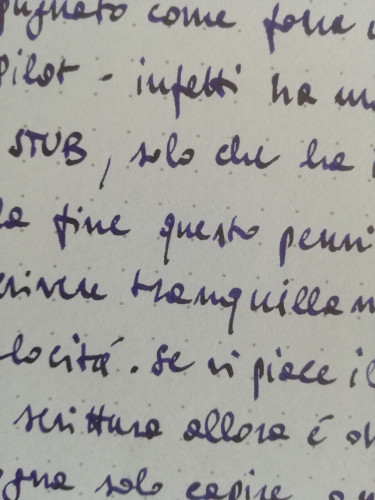 pugnato come fosse
Pilot - infatti ha
STUB, solo che ha
la fine questo penni
crivere tranquillam
locitá. Se vi piace il
scrittura allora é
egna solo capire